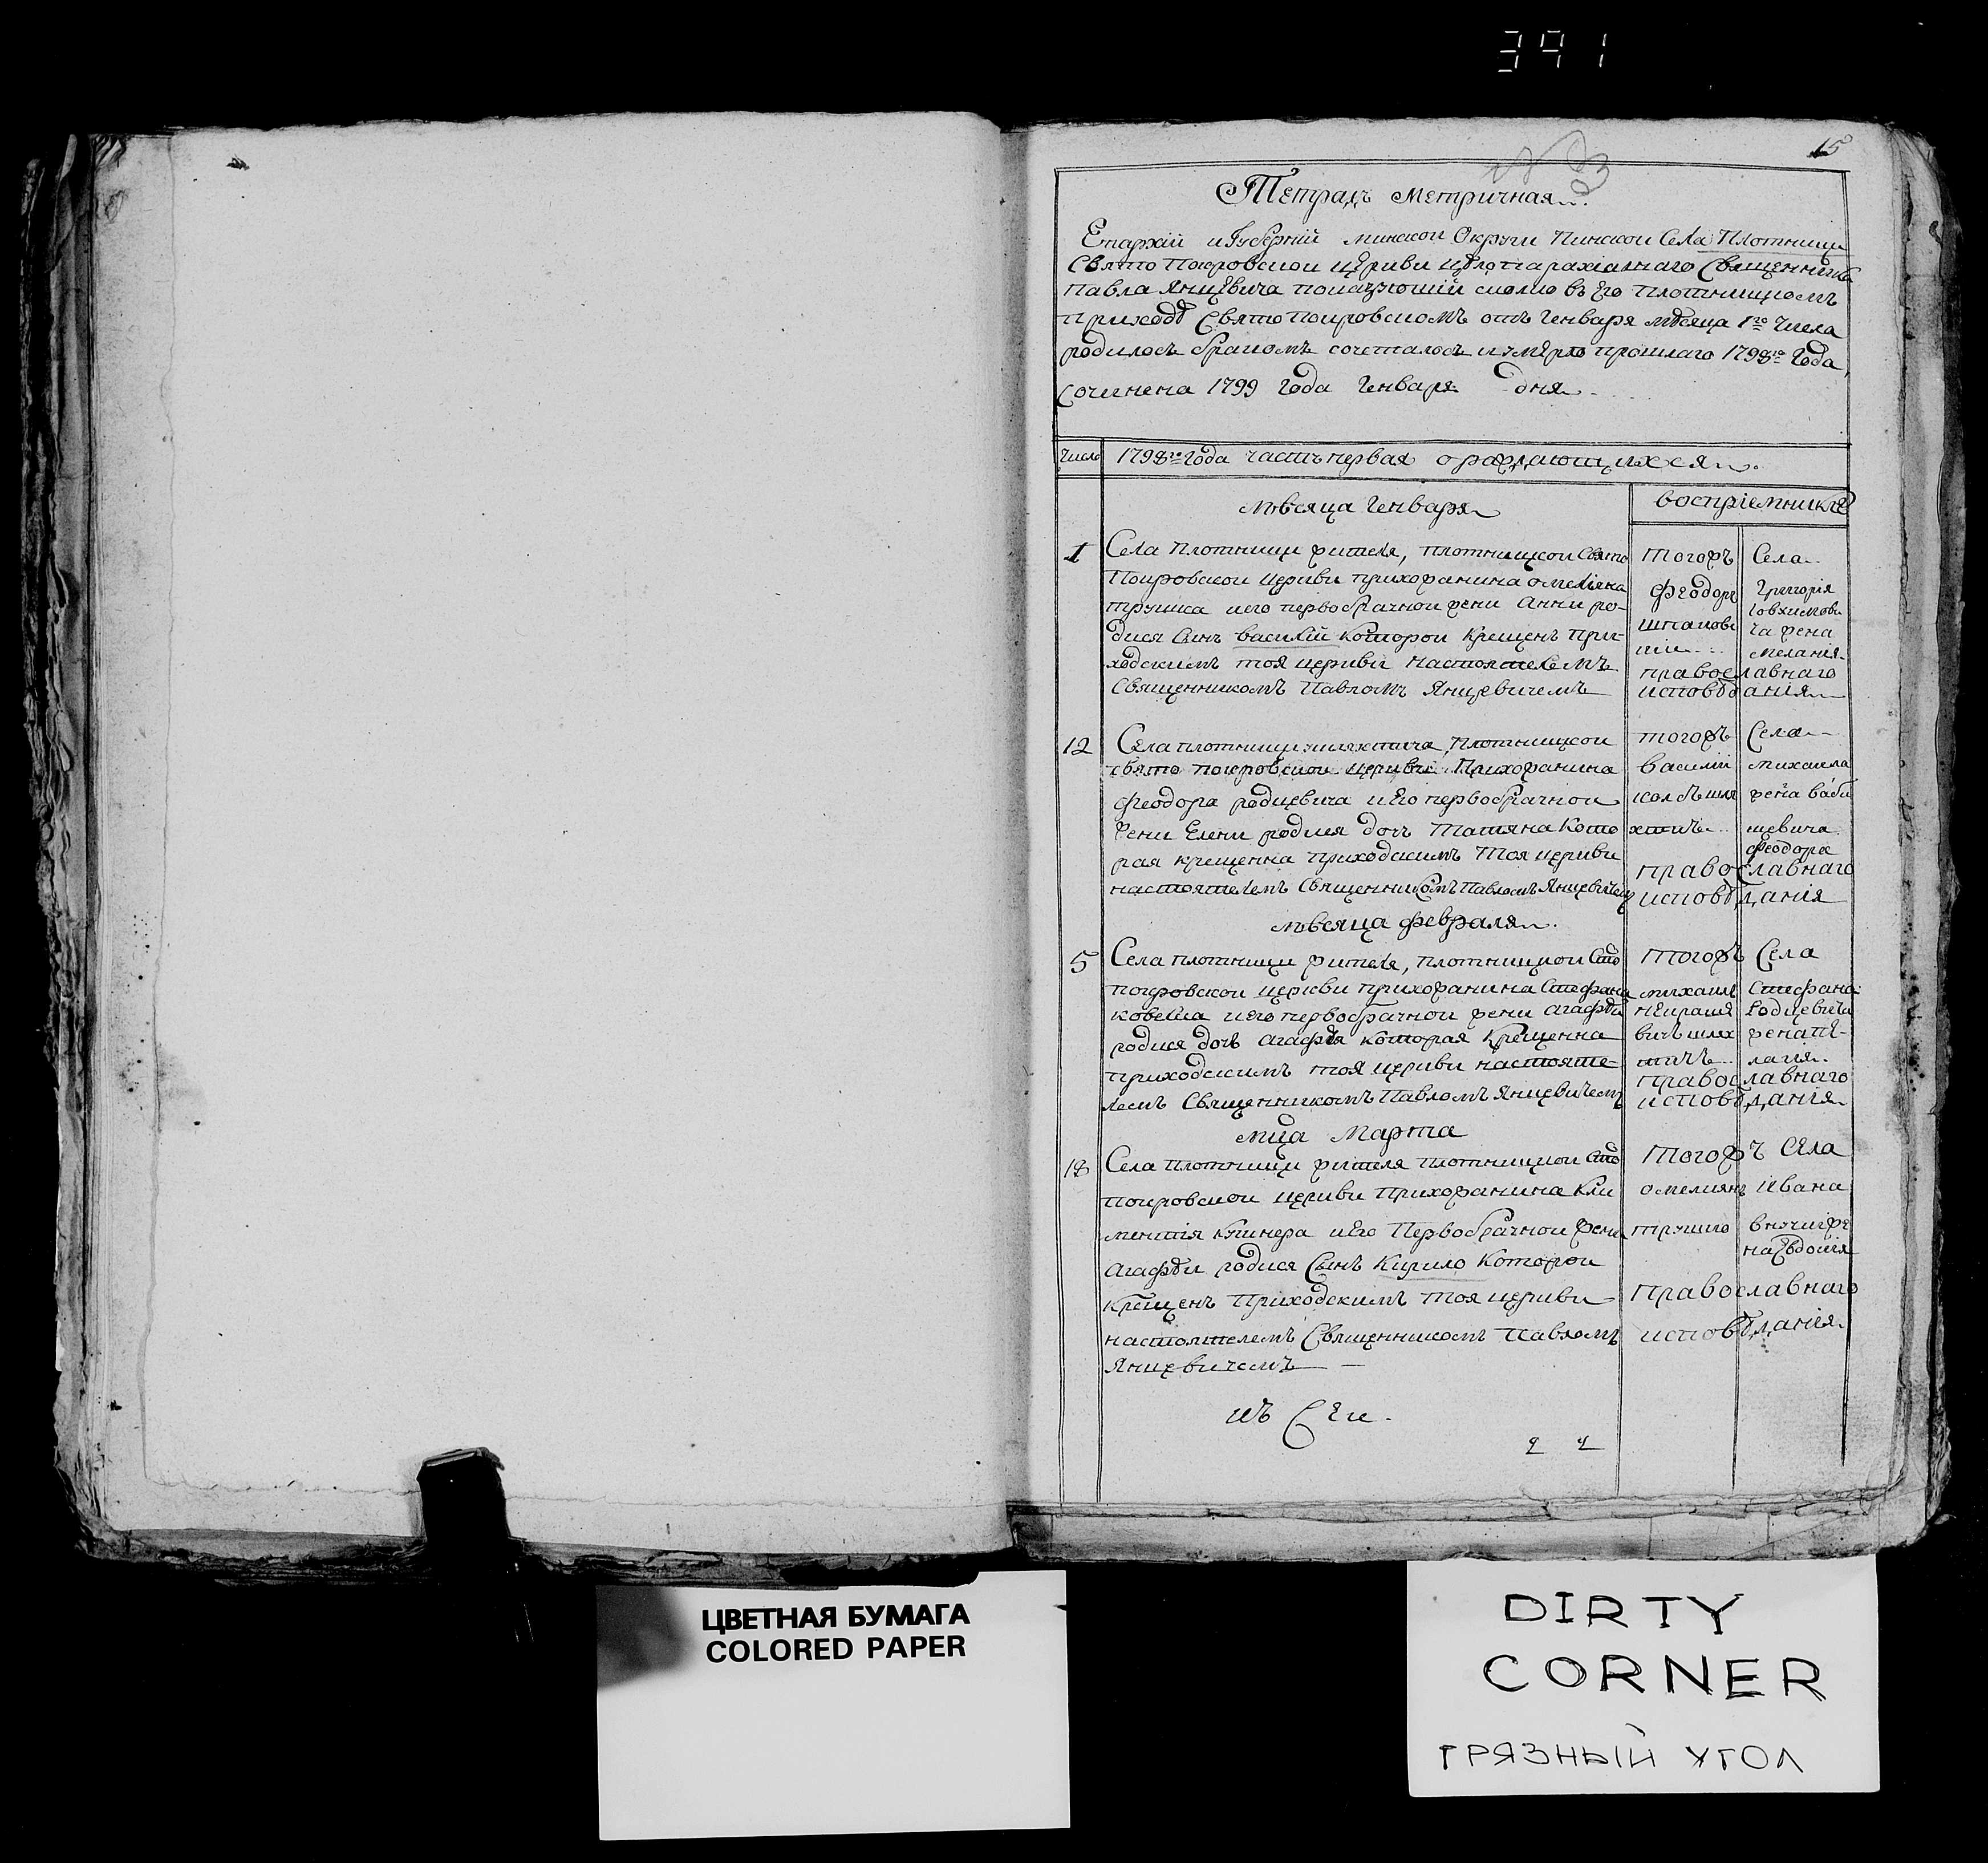 391
15
№ 3
Тетрадь метричная
Епархіи и Губерніи минской Округи Пинской Села Плотници
Свято Покровской церкви целопарахіалнаго Священника
Павла Янцевича показующій сколко въ Его плотницкомъ
приходѣ Свято покровскомъ отъ Генваря мѣсяца 1го числа
родилось бракомъ сочеталось и умерло прошлаго 1798го Года
Сочинена 1799 Года Генваря дня
Число 1798го Года часть первая о раждающихся
мѣсяца Генваря
воспріемники
1 Села Плотници жителя, плотницкой Свято
Покровской церкви прихожанина омеліяна
трушка и его первобрачной жени Анни ро-
дися Синъ василій которой крещенъ при-
ходскимъ тоя церкви настоятелемъ
Священникомъ Павломъ Янцевичемъ
тогожъ Села
Феодоръ Григорія
шпаковс Іовхимови
кій ча жена
меланія
православнаго
исповѣданія
12 Села плотници шляхтича, Плотницкой
свято покровской церкви Прихожанина
Феодора родцевича и Его первобрачной
жени Елени родися дочь Татяна Кото
рая крещенна приходскимъ Тоя церкви
настоятелемъ Священникомъ Павломъ Янцевичем
тогожъ Села
василій михаила
колбъ шля жена баби
хтичъ щевича
Феодора
православнаго
исповѣданія
мѣсяца февраля
5 Села плотници жителя, плотницкой Сто
покровской церкви прихожанина Стефана
ковеша и его первобрачной жени агафіи
родися дочь агафія которая Крещенна
приходскимъ тоя церкви настояте
лемъ Священникомъ Павломъ Янцевичемъ
тогожъ Села
михаилъ Стефана
некраше Родцевича
вичъ шлях жена пе-
тичъ лагія
православнаго
исповѣданія
мца Марта
18 Села Плотници жителя плотницкой Сто
покровской церкви Прихожанина Кли
ментія кушнера и Его Первобрачной жени
агафіи родися Сынъ Кирило Которой
крещенъ Приходскимъ тоя церкви
настоятелемъ Священникомъ Павломъ
Янцевичемъ
тогожъ Села
омелиянъ Ивана
трушко внучи же
на Евдокія
православнаго
исповѣданія
къ Сей
ЦВЕТНАЯ БУМАГА
COLORED PAPER
DIRTY
CORNER
ГРЯЗНЫЙ УГОЛ